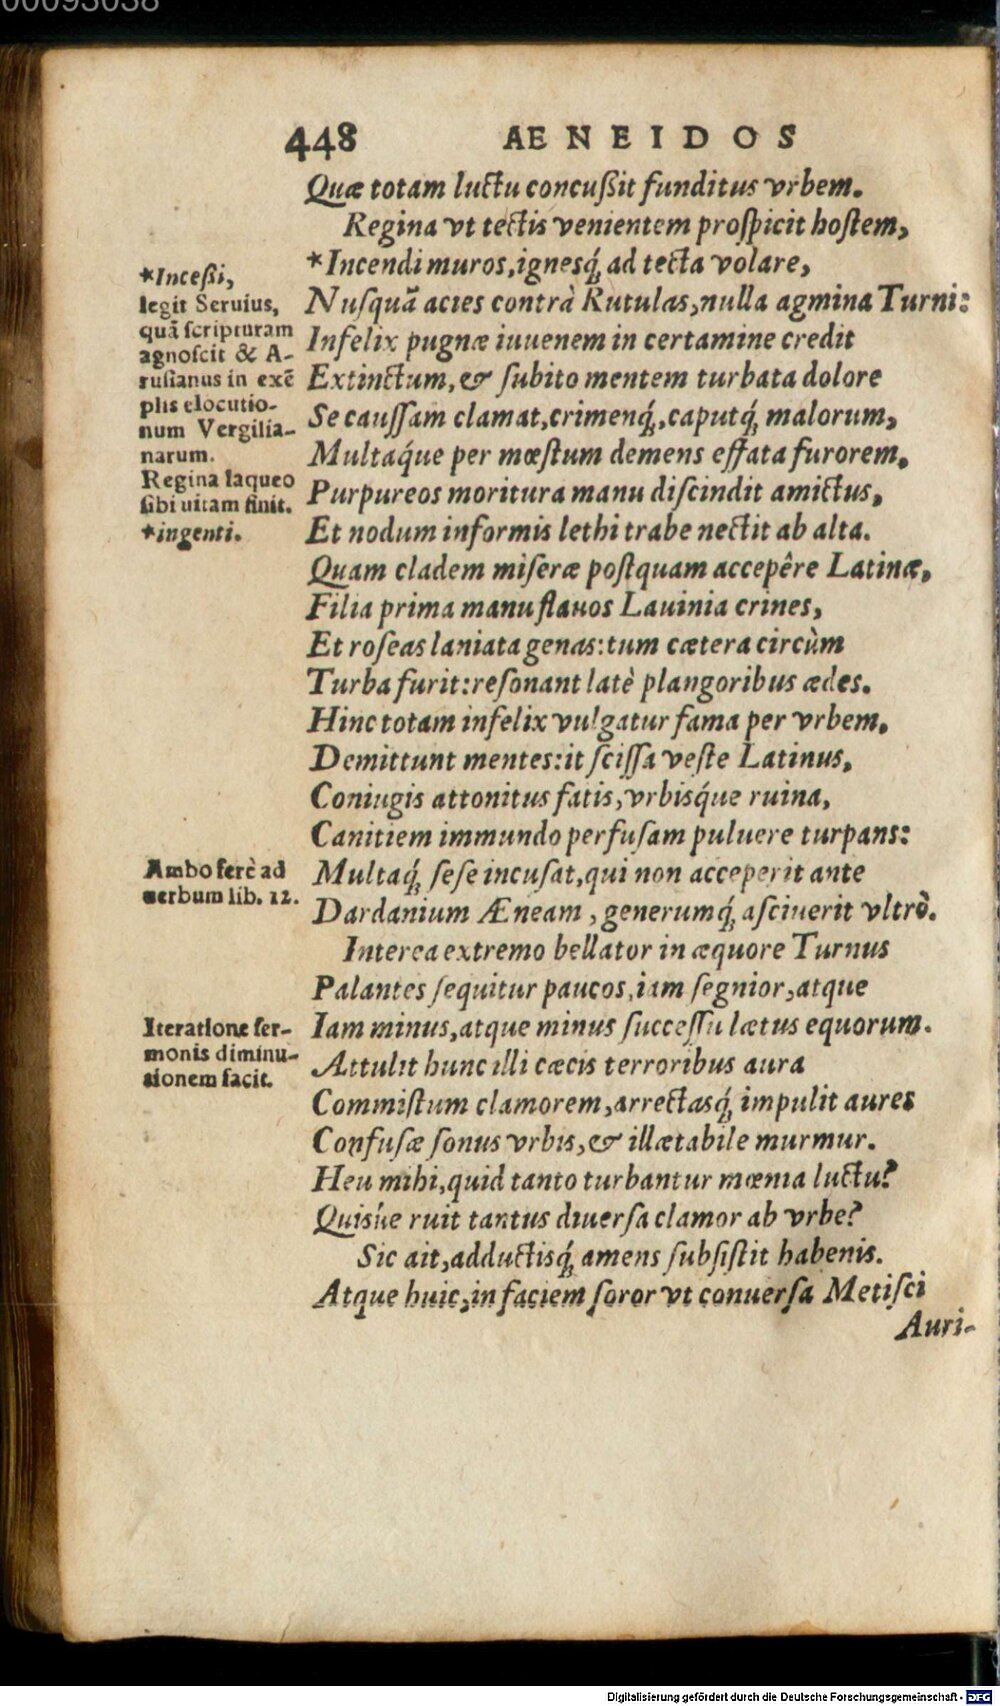 00093038
448 AENEIDOS
Quæ totam luctu concußit funditus vrbem.
Regina vt tectis venientem prospicit hostem,
*Incendi muros, ignesq́; ad tecta volare,
Nusquā acies contrà Rutulas, nulla agmina Turni:
Infelix pugnæ iuuenem in certamine credit
Extinctum, & subito mentem turbata dolore
Se caussam clamat, crimenq́;, caputq́; malorum,
Multaq́ue per mœstum demens effata furorem,
Purpureos moritura manu discindit amictus,
Et nodum informis lethi trabe nectit ab alta.
Quam cladem miseræ postquam accepêre Latinæ,
Filia prima manu flauos Lauinia crines,
Et roseas laniata genas: tum cætera circùm
Turba furit: resonant latè plangoribus ædes.
Hinc totam infelix vulgatur fama per vrbem.
Demittunt mentes: it scissa veste Latinus,
Coniugis attonitus fatis, vrbisq́ue ruina,
Canitiem immundo perfusam puluere turpans:
Multaq́; sese incusat, qui non acceperit ante
Dardanium Æneam, generumq́; asciuerit vltrò.
Interea extremo bellator in æquore Turnus
Palantes sequitur paucos, iam segnior, atque
Iam minus, atque minus successu lætus equorum.
Attulit hunc illi cæcis terroribus aura
Commistum clamorem, arrectasq́; impulit aures
Confusæ sonus vrbis, & illætabile murmur.
Heu mihi, quid tanto turbantur mœnia luctu?
Quisúe ruit tantus diuersa clamor ab vrbe?
Sic ait, adductisq́; amens subsistit habenis.
Atque huic, in faciem soror vt conuersa Metisci
Auri-
*Inceßi,
legit Seruius,
quā scripturam
agnoscit & A-
rusianus in exē
plis elocutio-
num Vergilia-
narum.
Regina laqueo
sibi uitam finit.
*ingenti.
Ambo ferè ad
uerbum lib. 12.
Iteratione ser-
monis diminu-
tionem facit.
Digitalisierung gefördert durch die Deutsche Forschungsgemeinschaft - DFG